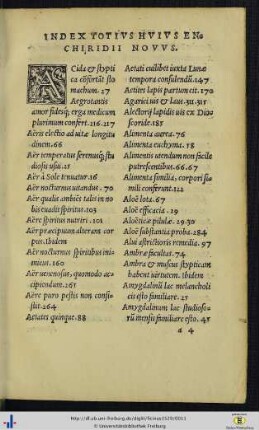 INDEX TOTIVS HVIVS EN
CHIRIDII NOVVS.
ACida & stypti
ca cōfortāt sto
machum. 27
Aegrotantis
amor fidesq; erga medicum
plurimum confert. 216.217
Aëris electio ad uitæ longitu
dinem. 66
Aër temperatus serenusq; stu
diosis usui. 21
Aër à Sole tenuatur. 16
Aër nocturnus uitandus. 70
Aër qualis ambit talis in no
bis euadit spiritus. 103
Aëre spiritus nutriri. 102
Aër præcipuum alterans cor
pus. ibidem
Aër nocturnus spiritibus ini
micus. 160
Aër uenenosus, quomodo ac
cipiendus. 261
Aëre puro pestis non consi
stit. 264
Aetates quinque. 88
Aetati cuilibet iuxta Lunæ
tempora consulendū. 147
Aetites lapis partum cit. 170
Agaricí usus & laus. 311.312
Alectorij lapidis uis ex Dios
coride. 185
Alimenta aerea. 76
Alimenta euchyma. 18
Alimentis utendum non facile
putrescentibus. 66.67
Alimenta similia, corpori si
mili conferunt. 112
Aloë lota. 67
Aloë efficacia. 29
Aloëticæ pilulæ. 29.30
Aloë substantia proba. 284
Alui astrictioris remedia. 97
Ambræ facultas. 74
Ambra & muscus stypticam
habent uirtutem. ibidem
Amygdalinū lac melancholi
cis esto familiare. 25
Amygdalinum lac studioso-
rū mensis familiare esto. 45
a 4
© Universitätsbibliothek Freiburg